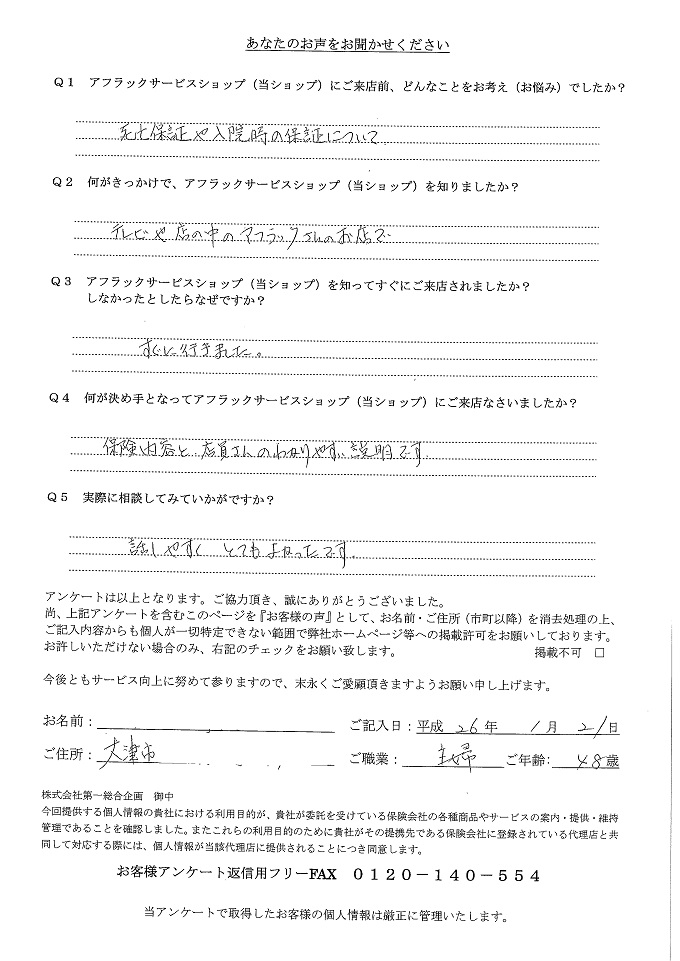 あなたのお声をお聞かせください
Q1 アフラックサービスショップ（当ショップ）にご来店前、どんなことをお考え（お悩み）でしたか？
死亡保証や入院時の保証について
Q2 何がきっかけで、アフラックサービスショップ（当ショップ）を知りましたか？
テレビや店の中のアフラックさんのお店で
Q3 アフラックサービスショップ（当ショップ）を知ってすぐにご来店されましたか？
しなかったとしたらなぜですか？
すぐに行きました。
Q4 何が決め手となってアフラックサービスショップ（当ショップ）にご来店なさいましたか？
保険内容と、店員さんのわかりやすい説明です。
Q5 実際に相談してみていかがですか？
話しやすく とてもよかったです。
アンケートは以上となります。ご協力頂き、誠にありがとうございました。
尚、上記アンケートを含むこのページを『お客様の声』として、お名前・ご住所（市町以降）を消去処理の上、
ご記入内容からも個人が一切特定できない範囲で弊社ホームページ等への掲載許可をお願いしております。
お許しいただけない場合のみ、右記のチェックをお願い致します。 掲載不可 □
今後ともサービス向上に努めて参りますので、末永くご愛顧頂きますようお願い申し上げます。
お名前： ご記入日：平成 26 年 1 月 21 日
ご住所：大津市 ご職業： 主婦 ご年齢： 48 歳
株式会社第一総合企画 御中
今回提供する個人情報の貴社における利用目的が、貴社が委託を受けている保険会社の各種商品やサービスの案内・提供・維持
管理であることを確認しました。またこれらの利用目的のために貴社がその提携先である保険会社に登録されている代理店と共
同して対応する際には、個人情報が当該代理店に提供されることにつき同意します。
お客様アンケート返信用フリーFAX 0120－140－554
当アンケートで取得したお客様の個人情報は厳正に管理いたします。